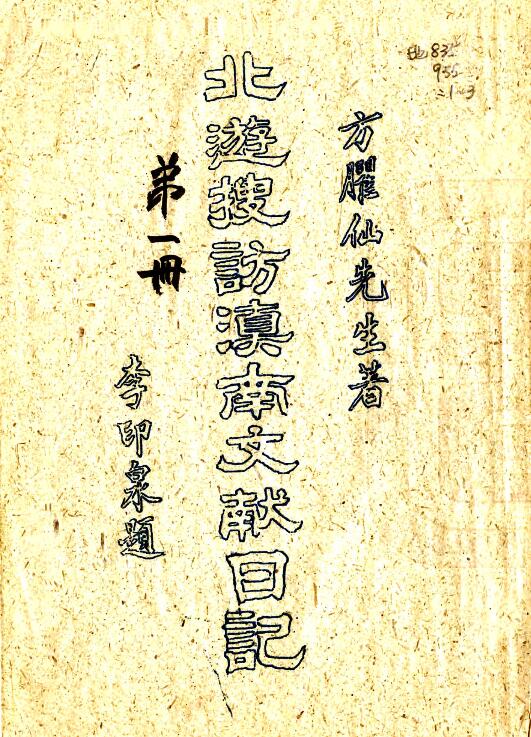 方臞仙先生著
北遊搜訪滇南文献日記
第一冊
李印泉題
835
955